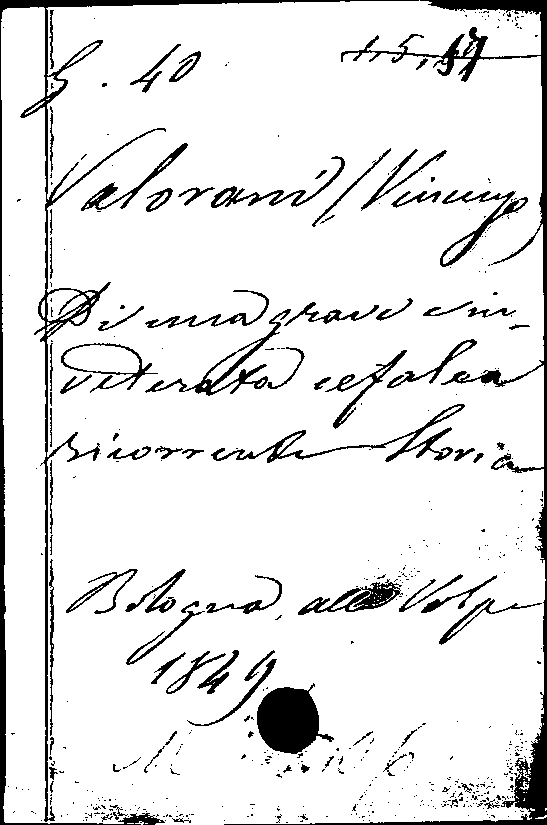 G. 40 1,5,17
Valorani (Vincenzo)
Di una grave e in-
veterata cefalea
ricorrente Storia
Bologna, alla Volpe
1849